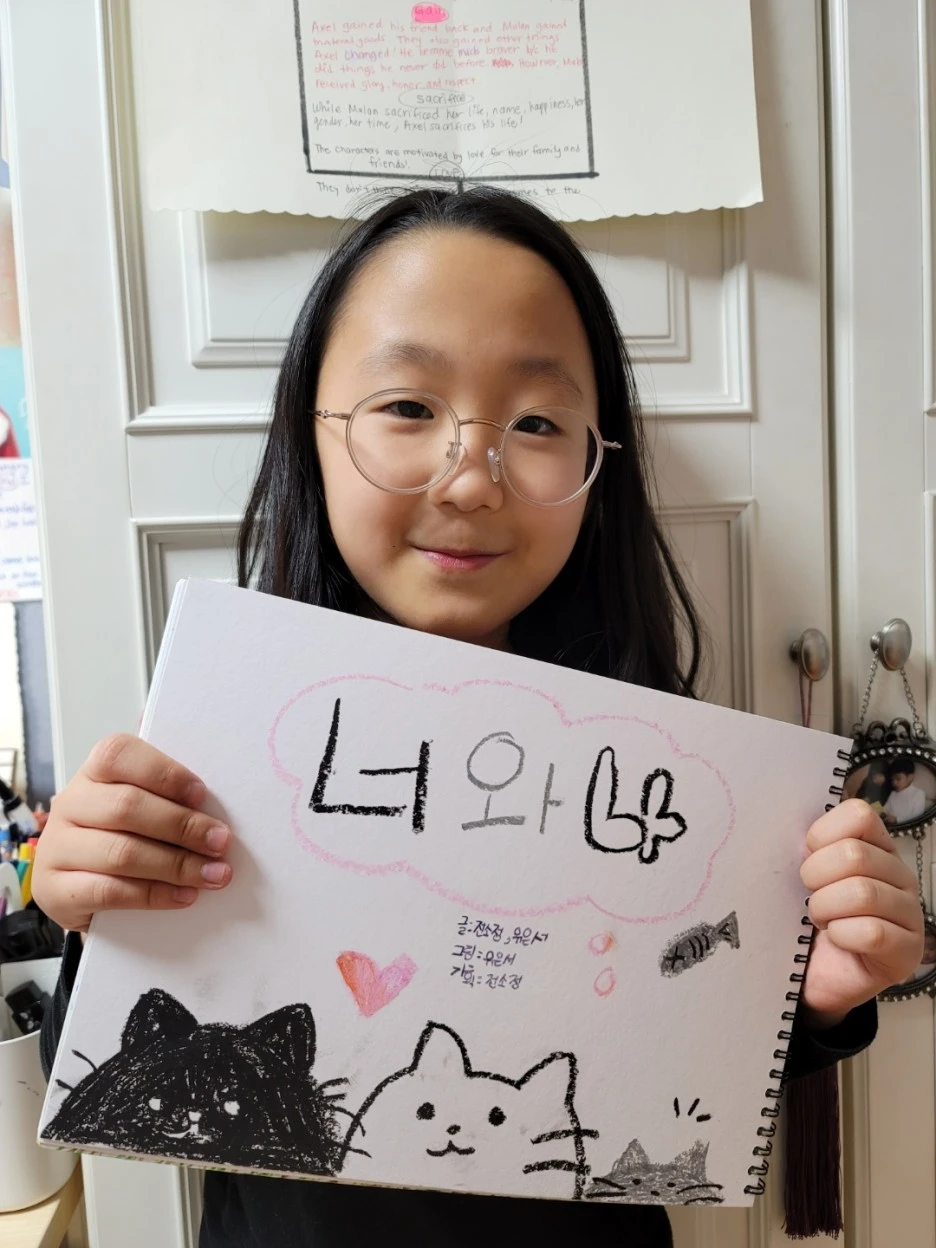 Gain
Axel gained his friend back and Mulan gained
material goods. They also gained other things
Axel changed! He became much braver b/c he
did things he never did before. However, Mulan
received glory, honor, and respect
Sacrifice
While Mulan sacrificed her life, name, happiness, her
gender, her time, Axel sacrifices his life!
The characters are motivated by love for their family and
friends!
LOVE
They don't to the
너와 나
글:전소정, 유은서
그림:유은서
기획:전소정